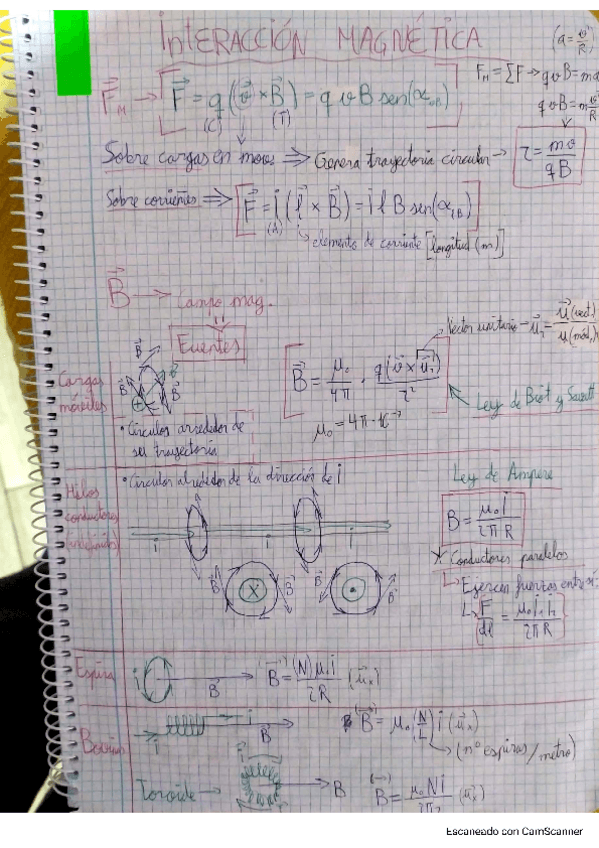 INTERACCIÓN MAGNÉTICA
(a = v²/R)
F_M = ΣF → q v B = ma
q v B = m v²/R
F⃗_M → F⃗ = q (v⃗ × B⃗) = q v B sen(α_vB)
(C) (T)
Sobre cargas en mov. ⇒ Genera trayectoria circular → r = mv/qB
Sobre corrientes ⇒ F⃗ = i (l⃗ × B⃗) = i l B sen(α_lB)
(A) ↳ elemento de corriente [longitud (m)]
B⃗ → Campo mag.
Fuentes
Vector unitario → u⃗_r = u⃗ (vect.)/u (mód.)
B⃗ = μ₀/4π · q (v⃗ × u⃗_r)/r²
Ley de Biot y Savart
μ₀ = 4π·10⁻⁷
Cargas móviles
B⃗ B⃗ B⃗
• Círculos alrededor de su trayectoria
Hilos conductores (indefinidos)
• Círculos alrededor de la dirección de i
i i
B⃗ X B⃗ B⃗ • B⃗
Ley de Ampere
B = μ₀ i/2πR
* Conductores paralelos
↳ Ejercen fuerzas entre sí:
↳ F/dl = μ₀ i₁ i₂/2πR
Espira
i B⃗ (B⃗) = (N) μ₀ i/2R (u⃗_x)
Bobina
i i B⃗ (B⃗) = μ₀ (N/L) i (u⃗_x)
↳ (nº espiras/metro)
Toroide → B (B⃗) = μ₀ N i/2πr (u⃗_x)
Escaneado con CamScanner